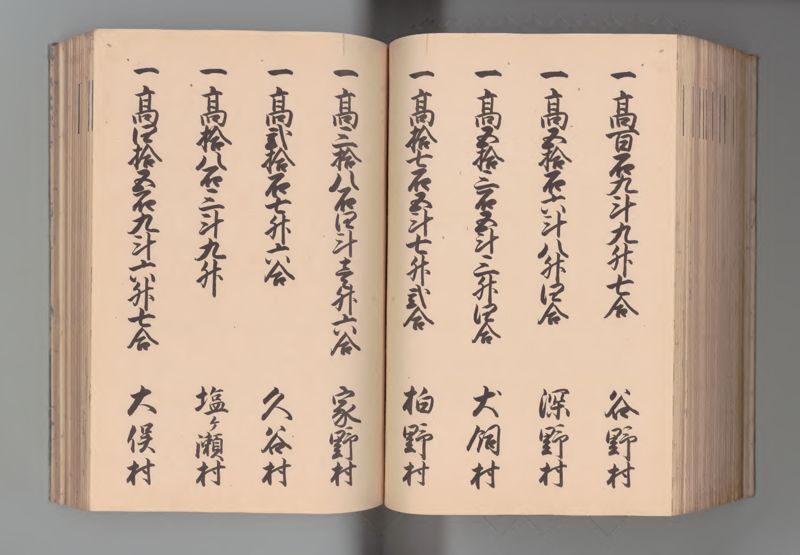 一高百石九斗九升七合 谷野村
一高五拾石六斗八升四合 深野村
一高五拾三石五斗三升四合 犬飼村
一高拾七石五斗七升弐合 柏野村
一高三拾八石四斗壱升六合 家野村
一高弐拾石七升六合 久谷村
一高拾八石三斗九升 塩ヶ瀬村
一高四拾五石九斗六升七合 大俣村